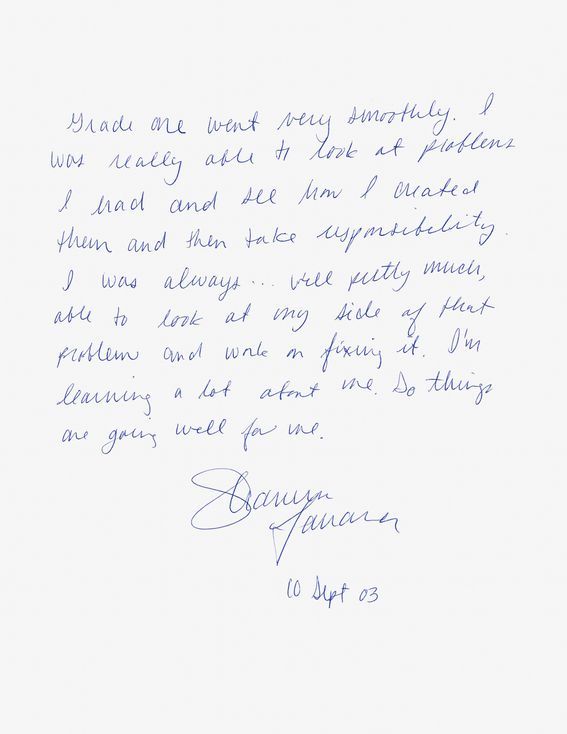 Grade one went very smoothly. I
was really able to look at problems
I had and see how I created
them and then take responsibility.
I was always... well pretty much,
able to look at my side of that
problem and work on fixing it. I'm
learning a lot about me. So things
are going well for me.
10 Sept 03